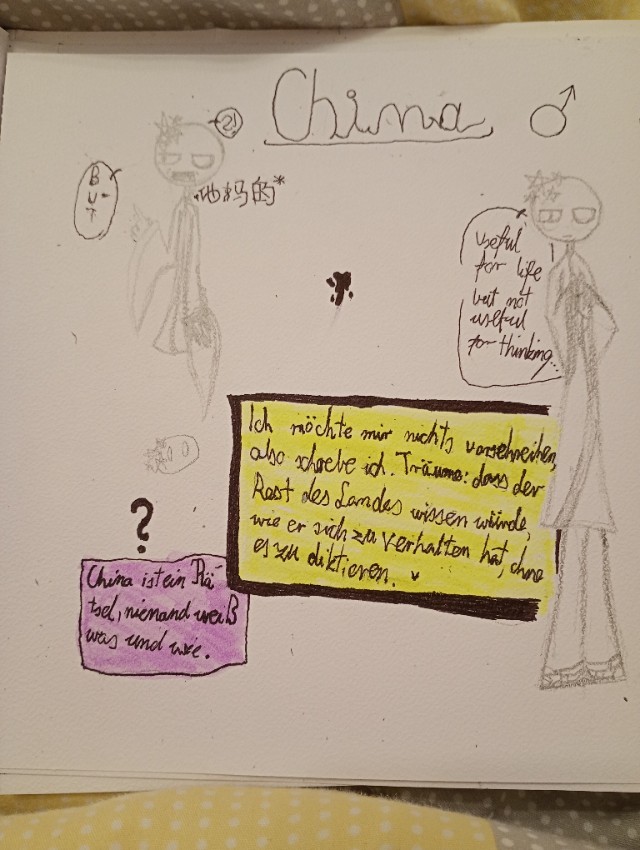 China
♂
21
BUT
他妈的*
useful
for life
but not
useful
for thinking...
Ich möchte mir nichts vorschreiben,
also schrebe ich. Träume: dass der
Rest des Landes wissen würde,
wie er sich zu verhalten hat, ohne
es zu diktieren.
?
China ist ein Rä-
tsel, niemand weiß
was und wie.